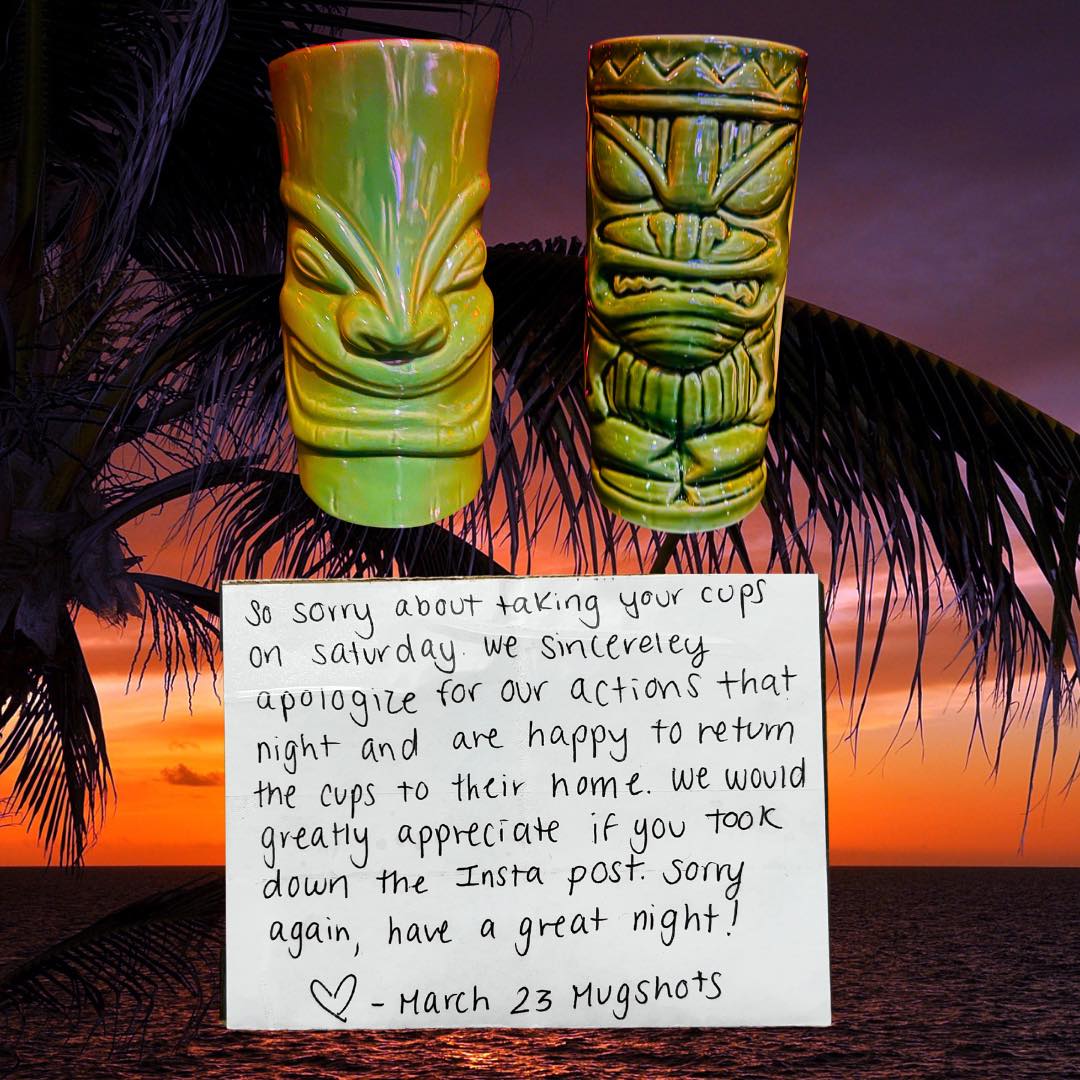 So sorry about taking your cups
on saturday. we sincereley
apologize for our actions that
night and are happy to return
the cups to their home. we would
greatly appreciate if you took
down the Insta post. sorry
again, have a great night!
♡ - March 23 Mugshots